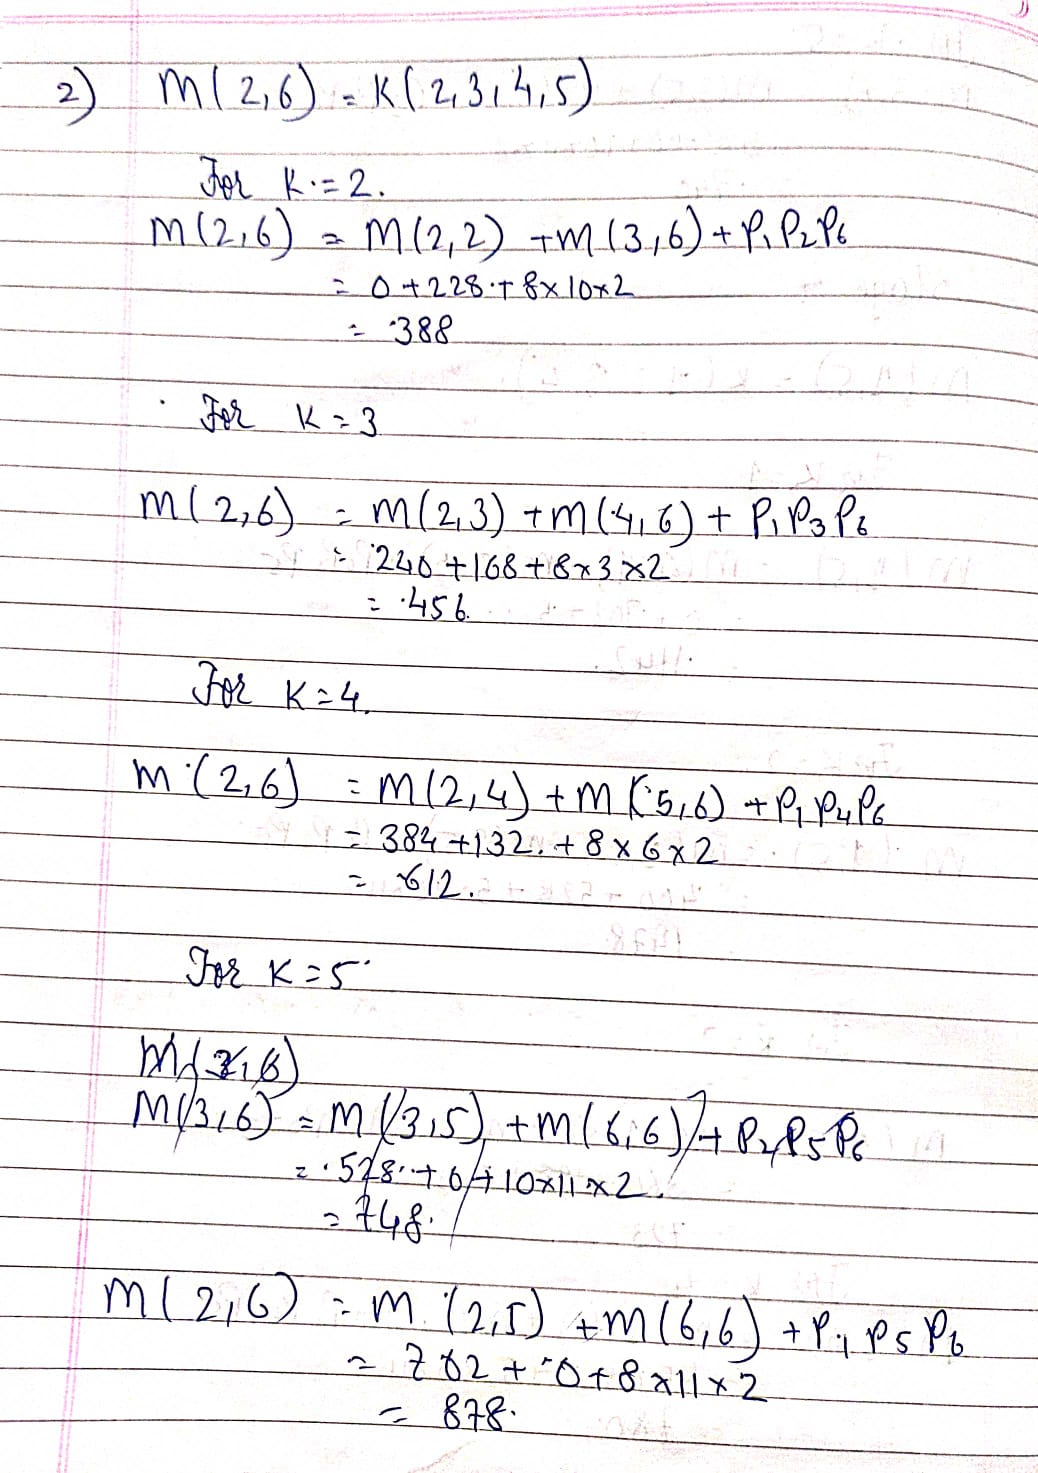 2) M(2,6) = K(2,3,4,5)
For K = 2.
M(2,6) = M(2,2) + M(3,6) + P₁P₂P₆
= 0 + 228 + 8×10×2
= 388
For K = 3
M(2,6) = M(2,3) + M(4,6) + P₁P₃P₆
= 240 + 168 + 8×3×2
= 456.
For K = 4.
M(2,6) = M(2,4) + M(5,6) + P₁P₄P₆
= 384 + 132 + 8×6×2
= 612.
For K = 5
M(3,6) = M(3,5) + M(6,6) + P₂P₅P₆
= 528 + 0 + 10×11×2.
= 748.
M(2,6) = M(2,5) + M(6,6) + P₁P₅P₆
= 702 + 0 + 8×11×2
= 878.